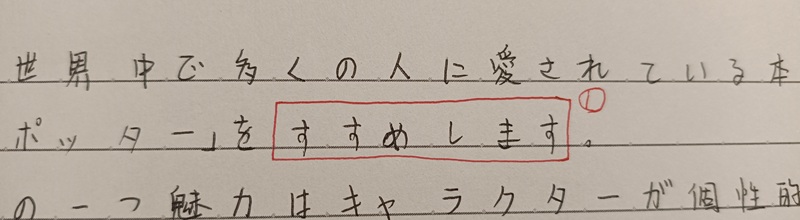 世界中で多くの人に愛されている本
ポッター」をすすめします。①
の一つ魅力はキャラクターが個性的